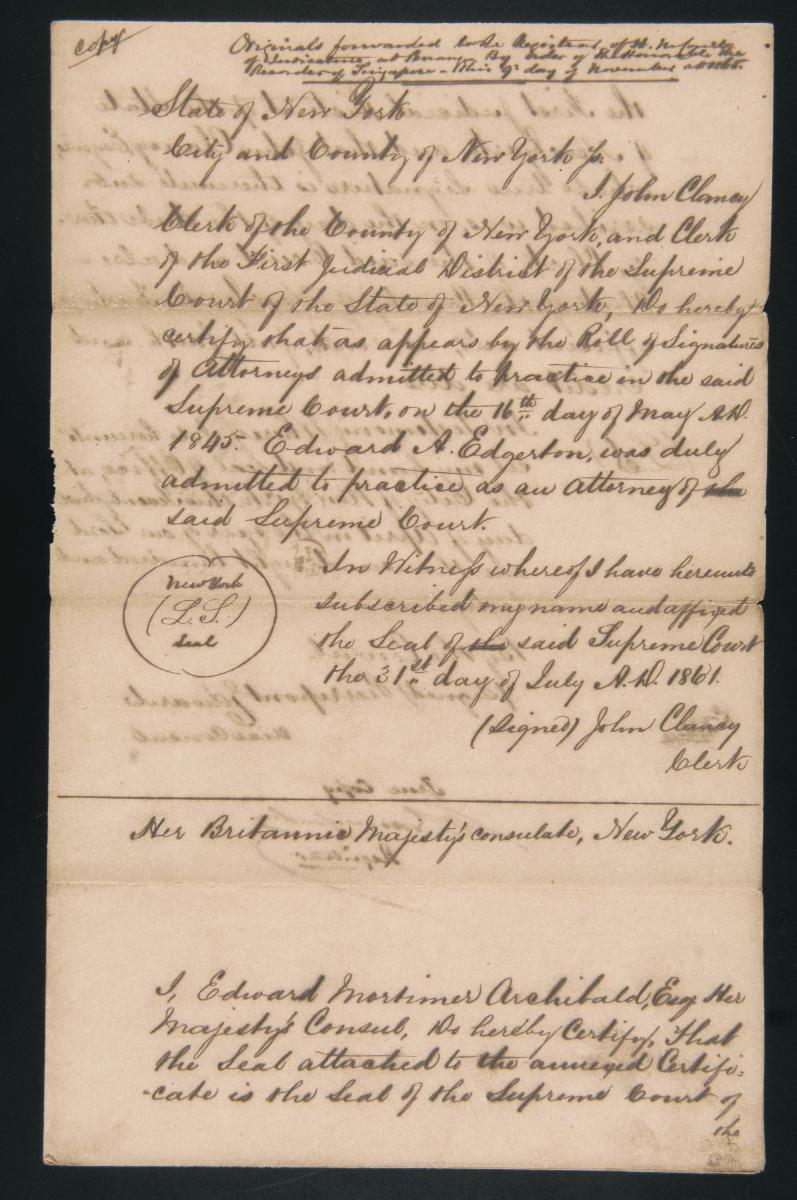 Copy
Originals forwarded to the Registrar of H. M. Court
of Judicature at Penang By Order of the Honorable the
Recorder of Singapore - this 9th day of November AD 1865.
State of New York
City and County of New York ss.
I, John Clancy
Clerk of the County of New York, and Clerk
of the First Judicial District of the Supreme
Court of the State of New York, Do hereby
certify that as appears by the Roll of Signatures
of Attorneys admitted to practice in the said
Supreme Court, on the 16th day of May A.D.
1845. Edward A. Edgerton, was duly
admitted to practice as an Attorney of the
said Supreme Court.
In Witness whereof I have hereunto
subscribed my name and affixed
the Seal of the said Supreme Court
the 31st day of July A.D. 1861.
New York
(L.S.)
Seal
(Signed) John Clancy
Clerk
Her Britannic Majesty's Consulate, New York.
I, Edward Mortimer Archibald, Esq. Her
Majesty's Consul, Do hereby Certify, That
the Seal attached to the annexed Certifi=
-cate is the Seal of the Supreme Court of
the